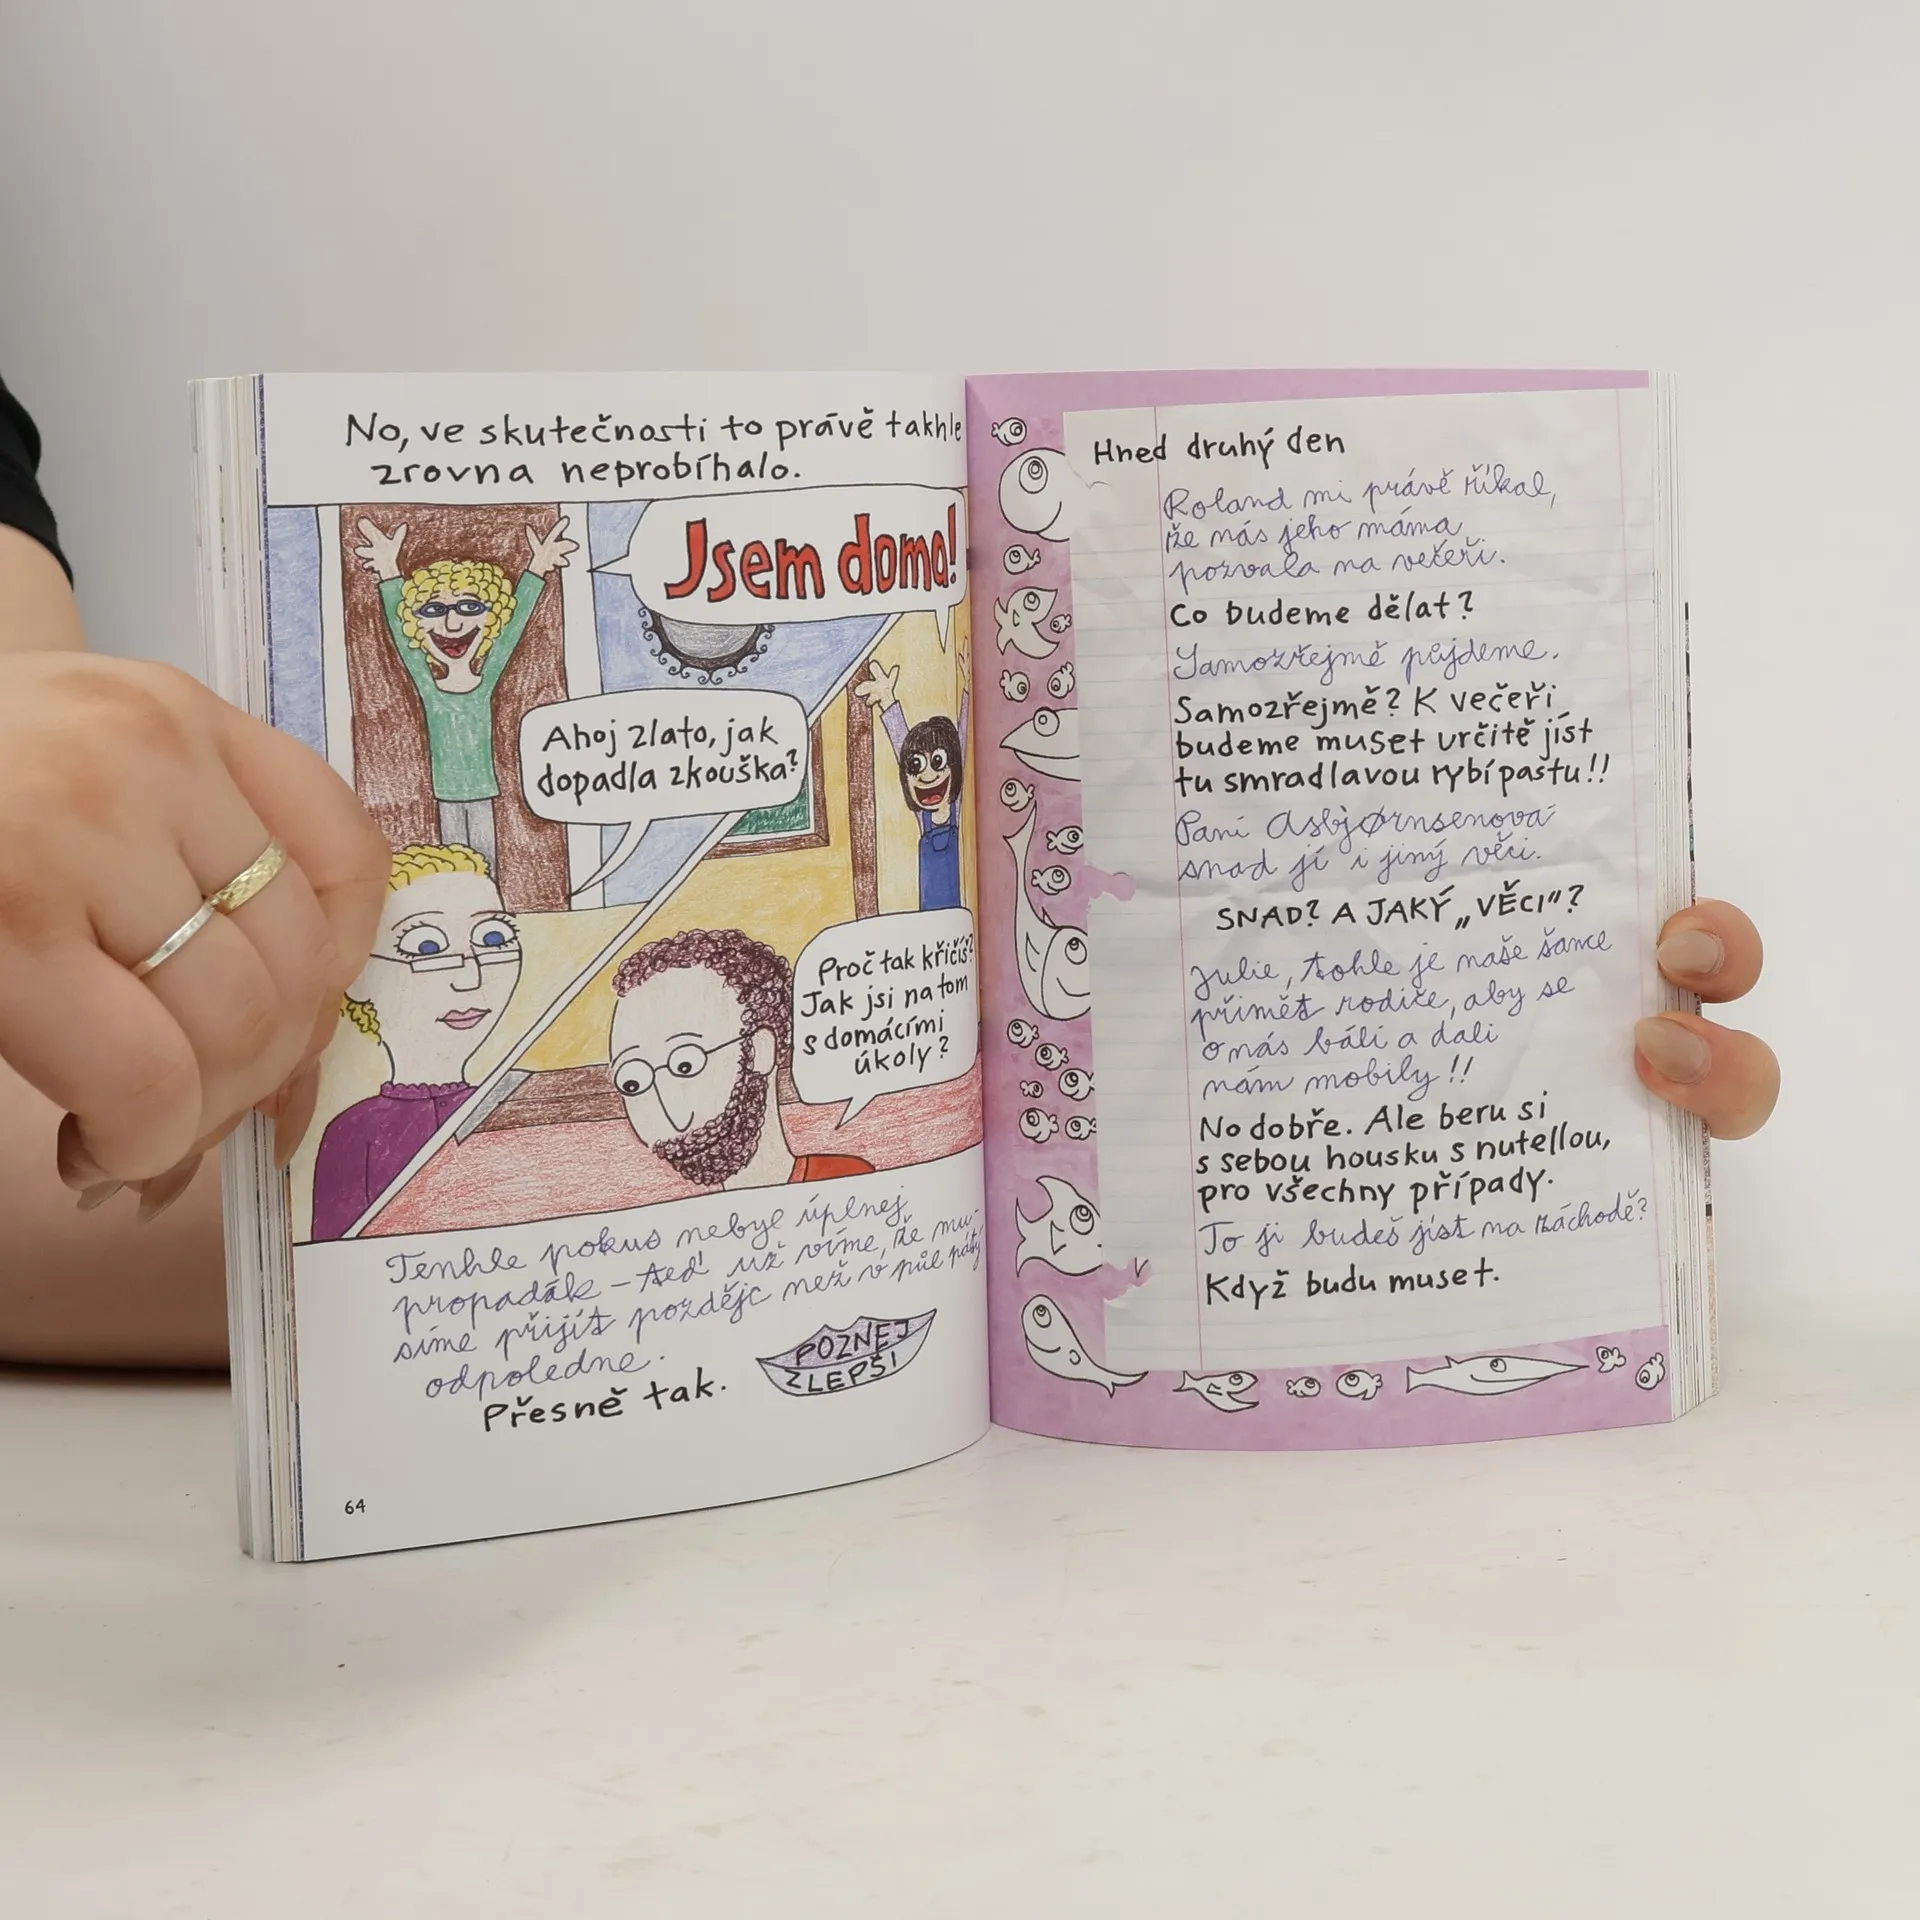 No, ve skutečnosti to právě takhle
zrovna neprobíhalo.
Jsem doma!
Ahoj zlato, jak
dopadla zkouška?
Proč tak křičíš?
Jak jsi na tom
s domácími
úkoly?
Tenhle pokus nebyl úplnej
propadák – teď už víme, že mu-
síme přijít pozdějc než v půl pátý
odpoledne.
Přesně tak.
POZNEJ
ZLEPŠI
64
Hned druhý den
Roland mi právě říkal,
že nás jeho máma
pozvala na večeři.
Co budeme dělat?
Samozřejmě půjdeme.
Samozřejmě? K večeři
budeme muset určitě jíst
tu smradlavou rybí pastu!!
Paní Asbjørnsenová
snad jí i jiný věci.
SNAD? A JAKÝ „VĚCI"?
Julie, tohle je naše šance
přimět rodiče, aby se
o nás báli a dali
nám mobily!!
No dobře. Ale beru si
s sebou housku s nutellou,
pro všechny případy.
To ji budeš jíst na záchodě?
Když budu muset.